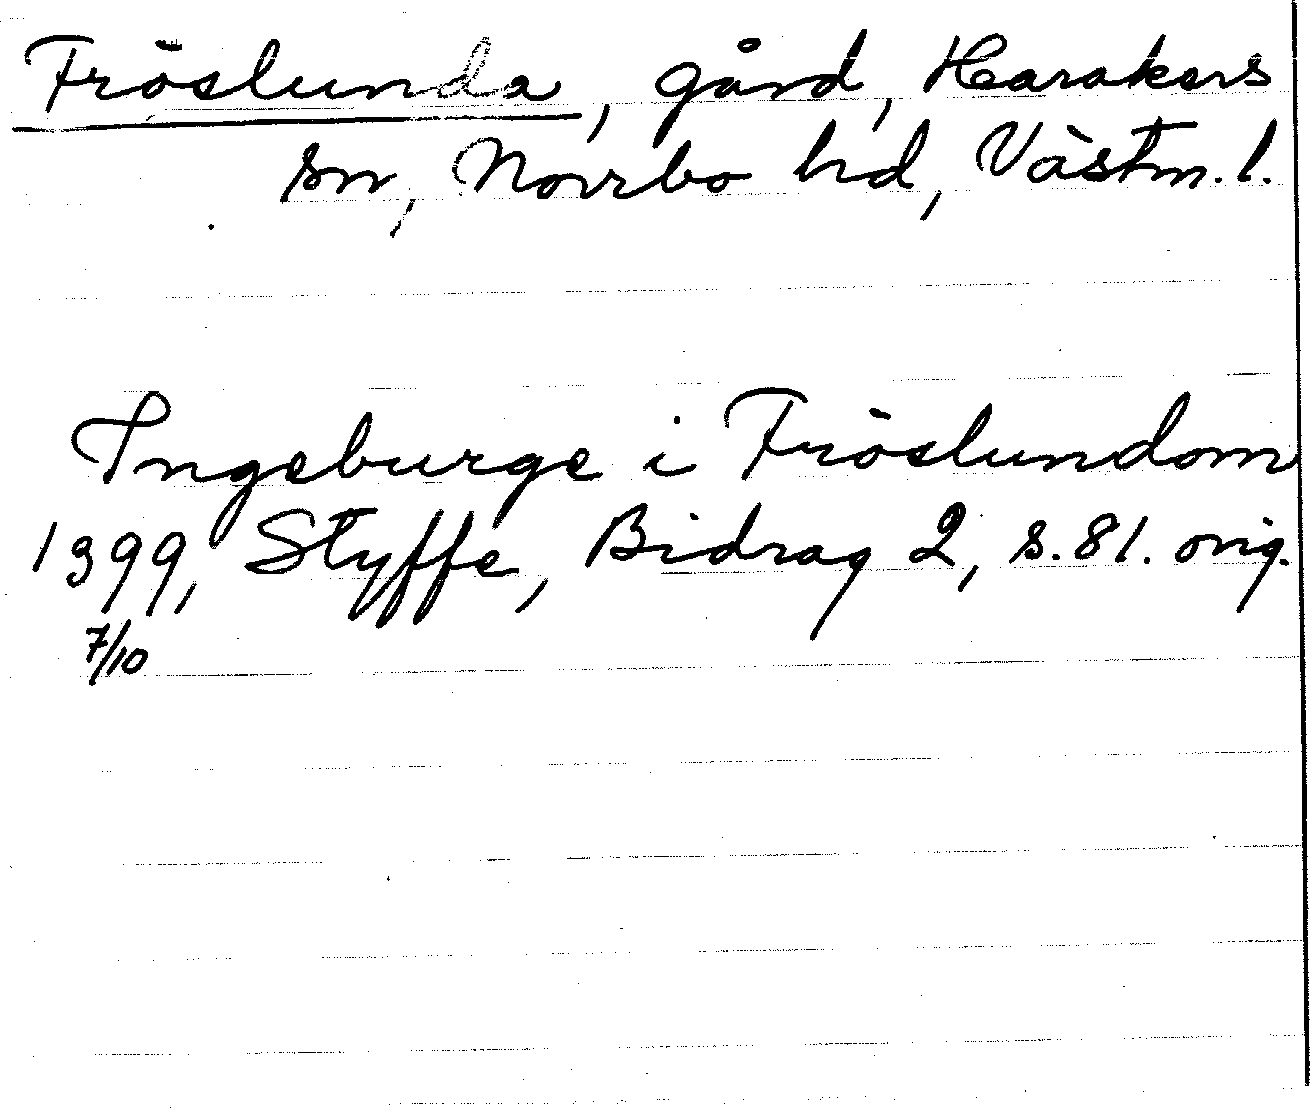 Fröslunda, gård, Harakers
sn, Norrbo hd, Västm. l.
Ingeburge i Fröslundom
1399, Styffe, Bidrag 2, s. 81. orig.
7/10